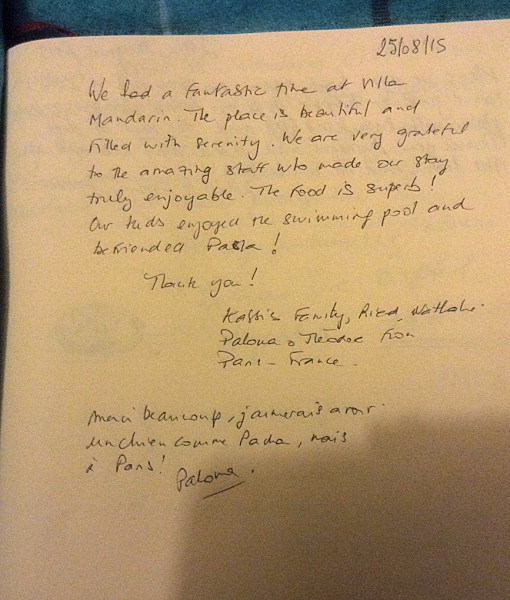 25/08/15
We had a fantastic time at Villa
Mandarin. The place is beautiful and
filled with serenity. We are very grateful
to the amazing staff who made our stay
truly enjoyable. The food is superb!
Our kids enjoyed the swimming pool and
befriended Pacha!
Thank you!
Family, Riad, Nathalie
Paloma & Théodore from
Paris - France.
Merci beaucoup, j'aimerais avoir
un chien comme Pacha, mais
à Paris!
Paloma.